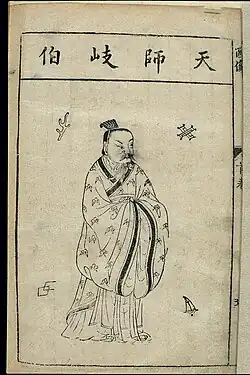 天師岐伯